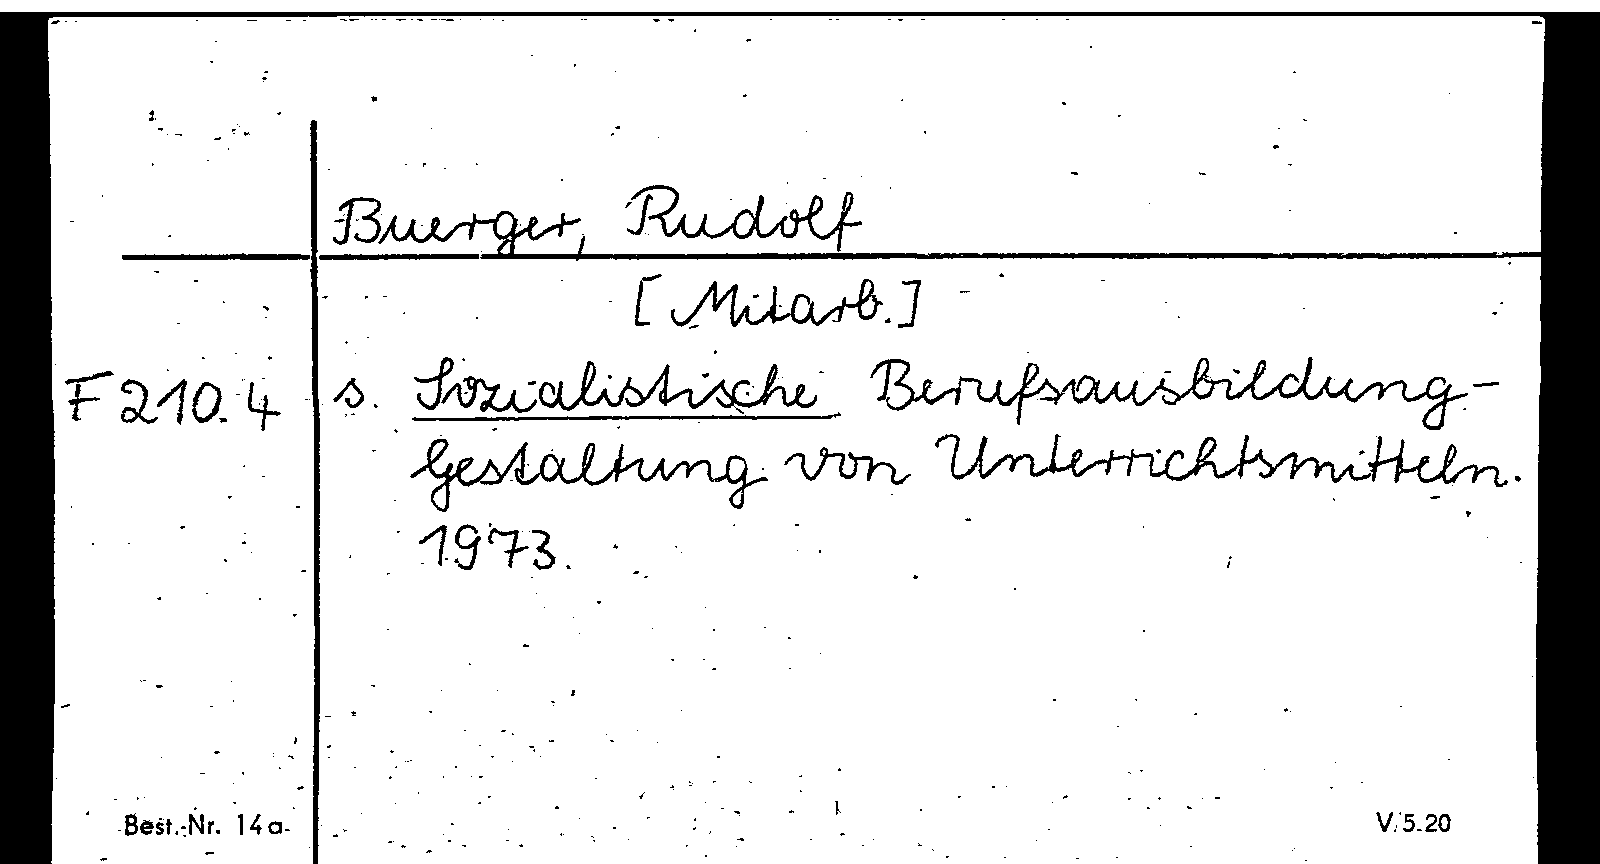 Buerger, Rudolf
[Mitarb.]
F 210.4 s. Sozialistische Berufsausbildung-
Gestaltung von Unterrichtsmitteln.
1973.
Best.-Nr. 14a V.5.20